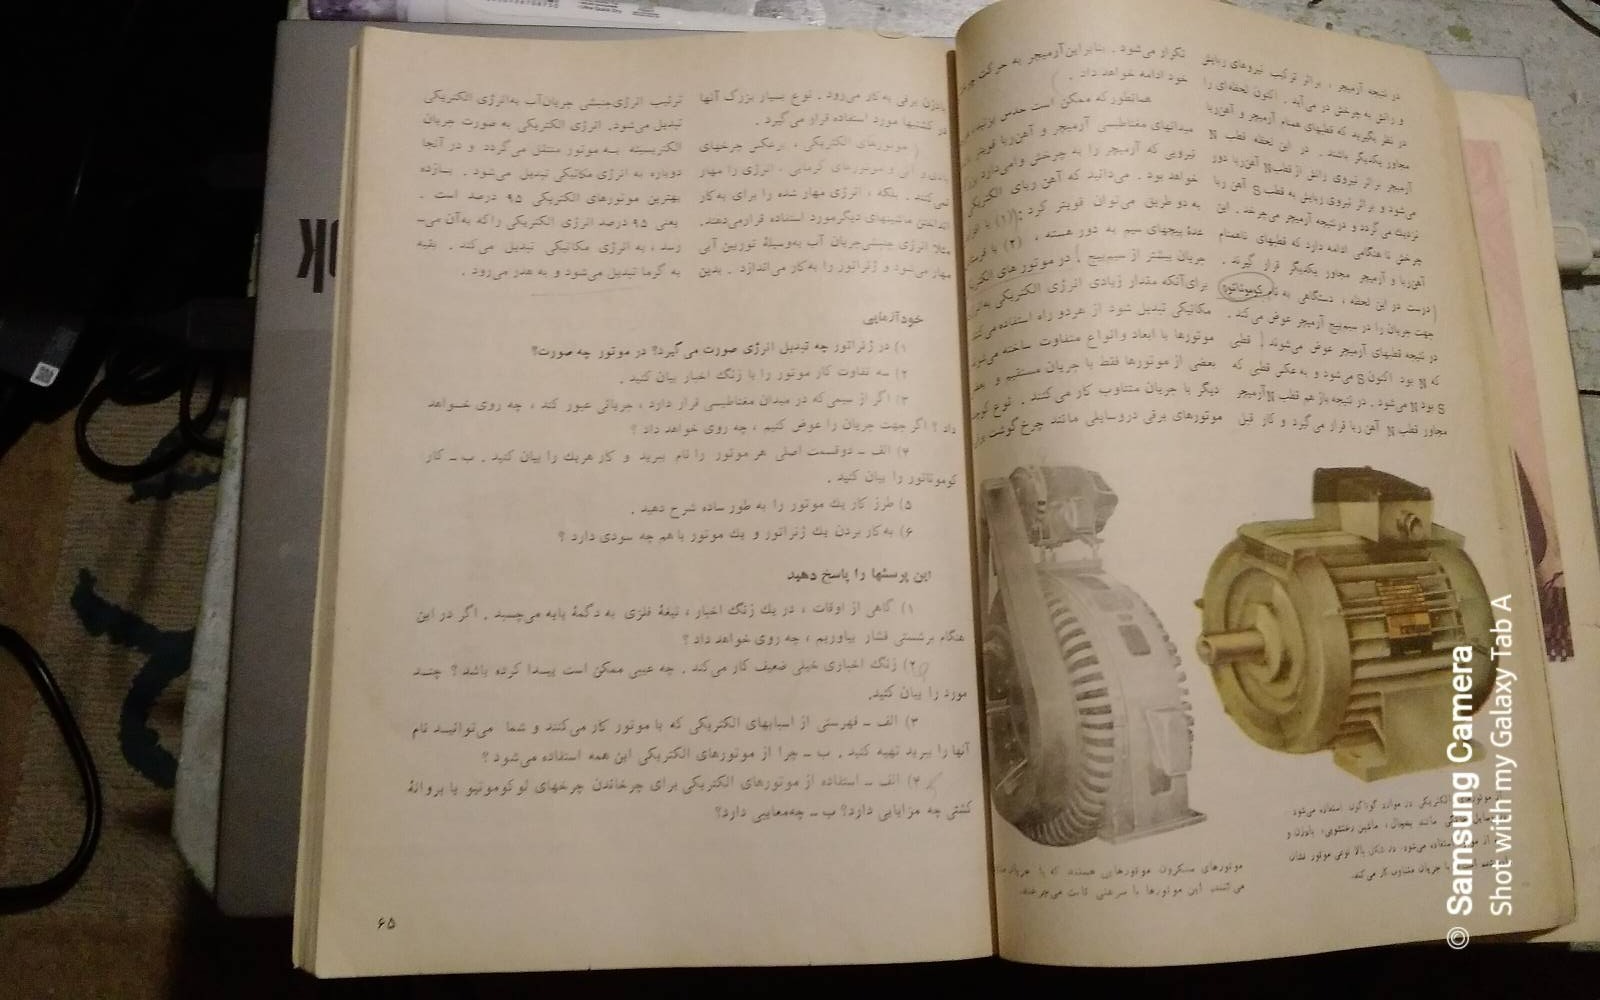 در نتیجه آرمیچر ، براثر ترکیب نیروهای ربایش
و رانش به چرخش در می‌آید . اکنون لحظه‌ای را
در نظر بگیرید که قطبهای همنام آرمیچر و آهن‌ربا
مجاور یکدیگر باشند . در این لحظه قطب N
آرمیچر براثر نیروی رانش از قطب N آهن‌ربا دور
می‌شود و براثر نیروی ربایش به قطب S آهن ربا
نزدیك می‌گردد و درنتیجه آرمیچر می‌چرخد . این
چرخش تا هنگامی ادامه دارد که قطبهای ناهمنام
آهن‌ربا و آرمیچر مجاور یکدیگر قرار گیرند .
درست در این لحظه ، دستگاهی به نام کوموتاتور
جهت جریان را در سیم‌پیچ آرمیچر عوض می‌کند .
در نتیجه قطبهای آرمیچر عوض می‌شوند ( قطبی
که N بود اکنون S می‌شود و به عکس قطبی که
S بود N می‌شود . در نتیجه باز هم قطب N آرمیچر
مجاور قطب N آهن ربا قرار می گیرد و کار قبل
تکرار می‌شود . بنابراین آرمیچر به حرکت
خود ادامه خواهد داد .
همانطور که ممکن است حدس بزنید
میدانهای مغناطیسی آرمیچر و آهن‌ربا قویتر
نیرویی که آرمیچر را به چرخش وامی‌دارد
خواهد بود . می‌دانید که آهن ربای الکتریکی
به دو طریق می‌توان قویتر کرد : (۱) با
عدهٔ پیچهای سیم به دور هسته ، (۲) با
جریان بیشتر از سیم‌پیچ ) در موتور های
برای‌آنکه مقدار زیادی انرژی الکتریکی
مکانیکی تبدیل شود از هردو راه استفاده
موتورها با ابعاد وانواع متفاوت ساخته
بعضی از موتورها فقط با جریان مستقیم و
دیگر با جریان متناوب کار می‌کنند . نوع
موتورهای برقی دروسایلی مانند چرخ گوشت
از موتورهای الکتریکی در موارد گوناگون استفاده می‌شود
مانند یخچال ، ماشین رختشویی، بادزن و
استفاده می‌شود. در شکل بالا نوعی موتور نشان
با جریان متناوب کار می‌کند.
موتورهای سنکرون موتورهایی هستند که با
می‌کنند. این موتورها با سرعتی ثابت می‌چرخند.
بادزن برقی به کار می‌رود . نوع بسیار بزرگ آنها
در کشتیها مورد استفاده قرار می گیرد .
موتورهای الکتریکی ، برعکس چرخهای
بادی و آبی و موتورهای گرمایی ، انرژی را مهار
نمی‌کنند . بلکه ، انرژی مهار شده را برای به‌کار
انداختن ماشینهای دیگر مورد استفاده قرارمی‌دهند.
مثلا انرژی جنبشی‌جریان آب به‌وسیلهٔ توربین آبی
مهار می‌شود و ژنراتور را به‌کار می‌اندازد . بدین
ترتیب انرژی‌جنبشی جریان‌آب به‌انرژی الکتریکی
تبدیل می‌شود. انرژی الکتریکی به صورت جریان
الکتریسیته بـه موتور منتقل می‌گردد و در آنجا
دوباره به انرژی مکانیکی تبدیل می‌شود . بسازده
بهترین موتورهای الکتریکی ۹۵ درصد است .
یعنی ۹۵ درصد انرژی الکتریکی راکه به‌آن می‌ـ
رسد ، به انرژی مکانیکی تبدیل می‌کند . بقیه
به گرما تبدیل می‌شود و به هدر می‌رود .
خودآزمایی
۱) در ژنراتور چه تبدیل انرژی صورت می گیرد؟ در موتور چه صورت؟
۲) سه تفاوت کار موتور را با زنگ اخبار بیان کنید .
۳) اگر از سیمی‌که در میدان مغناطیسی قرار دارد ، جریانی عبور کند ، چه روی خـواهد
داد ؟ اگر جهت جریان را عوض کنیم ، چه روی خواهد داد ؟
۴) الف ـ دوقسمت اصلی هر موتور را نام ببرید و کار هریك را بیان کنید . ب ـ کار
کوموتاتور را بیان کنید .
۵) طرز کار یك موتور را به طور ساده شرح دهید .
۶) به‌کار بردن یك ژنراتور و یك موتور با هم چه سودی دارد ؟
این پرسشها را پاسخ دهید
۱) گاهی از اوقات ، در یك زنگ اخبار ، تیغهٔ فلزی به دگمهٔ پایه می‌چسبد . اگر در این
هنگام برشستی فشار بیاوریم ، چه روی خواهد داد ؟
۲) زنگ اخباری خیلی ضعیف کار می‌کند . چه عیبی ممکن است پیـدا کرده باشد ؟ چنـد
مورد را بیان کنید.
۳) الف ـ فهرستی از اسبابهای الکتریکی که با موتور کار می‌کنند و شما می‌توانیـد نام
آنها را ببرید تهیه کنید . ب ـ چرا از موتورهای الکتریکی این همه استفاده می‌شود ؟
۴) الف ـ استفاده از موتورهای الکتریکی برای چرخاندن چرخهای لوکوموتیو یا پروانهٔ
کشتی چه مزایایی دارد؟ ب ـ چه‌معایبی دارد؟
۶۵
© Samsung Camera
Shot with my Galaxy Tab A